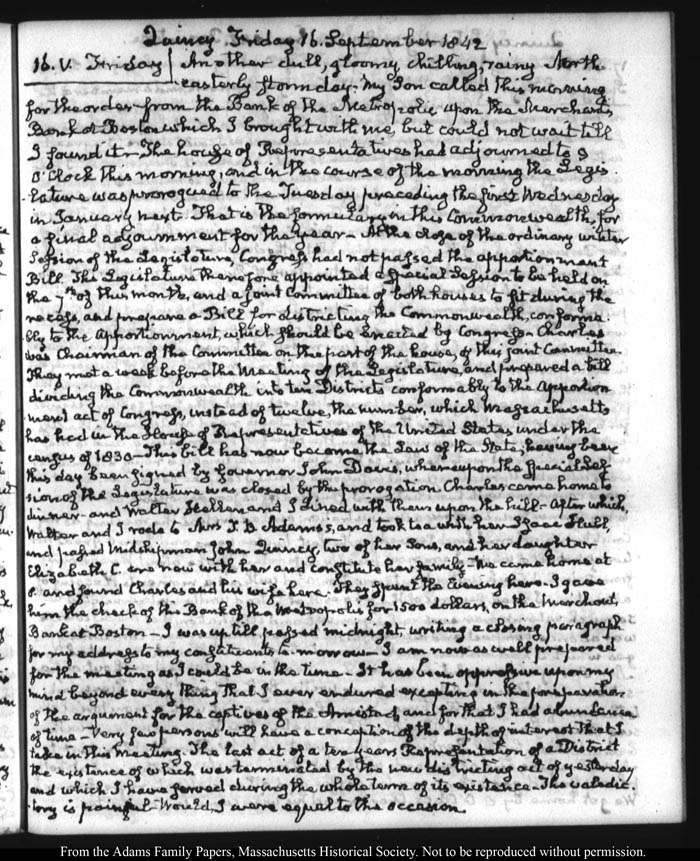 Quincy Friday 16. September 1842
16. V. Friday Another dull, gloomy chilling, rainy North
easterly storm day. My Son called this morning
for the order from the Bank of the Metropolis upon the Merchants
Bank at Boston which I brought with me, but could not wait till
I found it — The house of Representatives had adjourned to 9
O'Clock this morning, and in the course of the morning the Legis-
lature was prorogued to the Tuesday preceding the first Wednesday
in January next. That is the formulary in this Commonwealth, for
a final adjournment for the year — At the close of the ordinary winter
Session of the Legislature, Congress had not passed the apportionment
Bill. The Legislature therefore appointed a special Session to be held on
the 7th of this month, and a joint Committee of both houses to sit during the
recess, and prepare a Bill for districting the Commonwealth, conforma-
bly to the Apportionment, which should be enacted by Congress — Charles
was Chairman of the Committee on the part of the house, of this joint Committee.
They met a week before the meeting of the Legislature, and prepared a bill
dividing the Commonwealth into ten Districts conformably to the Apportion
ment act of Congress, instead of twelve, the number, which Massachusetts
has had in the House of Representatives of the United States under the
census of 1830 — This bill has now become the Law of the State; having been
this day been signed by Governor John Davis, whereupon the special Ses-
sion of the Legislature was closed by the prorogation Charles came home to
dinner — and Walter Hellen and I dined with them upon the hill — After which,
Walter and I rode to Mrs T. B. Adams's, and took tea with her. Isaac Hull,
and passed Midshipman John Quincy, two of her Sons, and her daughter
Elizabeth C. are now with her and constitute her family — We came home at
8. and found Charles and his wife here. They spent the Evening here. I gave
him the check of the Bank of the Metropolis for 1500 dollars, on the Merchants,
Bank at Boston — I was up till passed midnight, writing a closing paragraph
for my address to my constituents to-morrow — I am now as well prepared
for the meeting as I could be in the time — It has been oppressive upon my
mind beyond every thing that I ever endured excepting in the preparation
of the argument for the captives of the Amistad, and for that I had abundance
of time — Very few persons will have a conception of the depth of interest that I
take in this meeting. The last act of a ten years Representation of a District
the existence of which was terminated by the new districting act of yesterday
and which I have served during the whole term of its existence. The valedic-
tory is painful — Would, I were equal to the occasion.
From the Adams Family Papers, Massachusetts Historical Society. Not to be reproduced without permission.